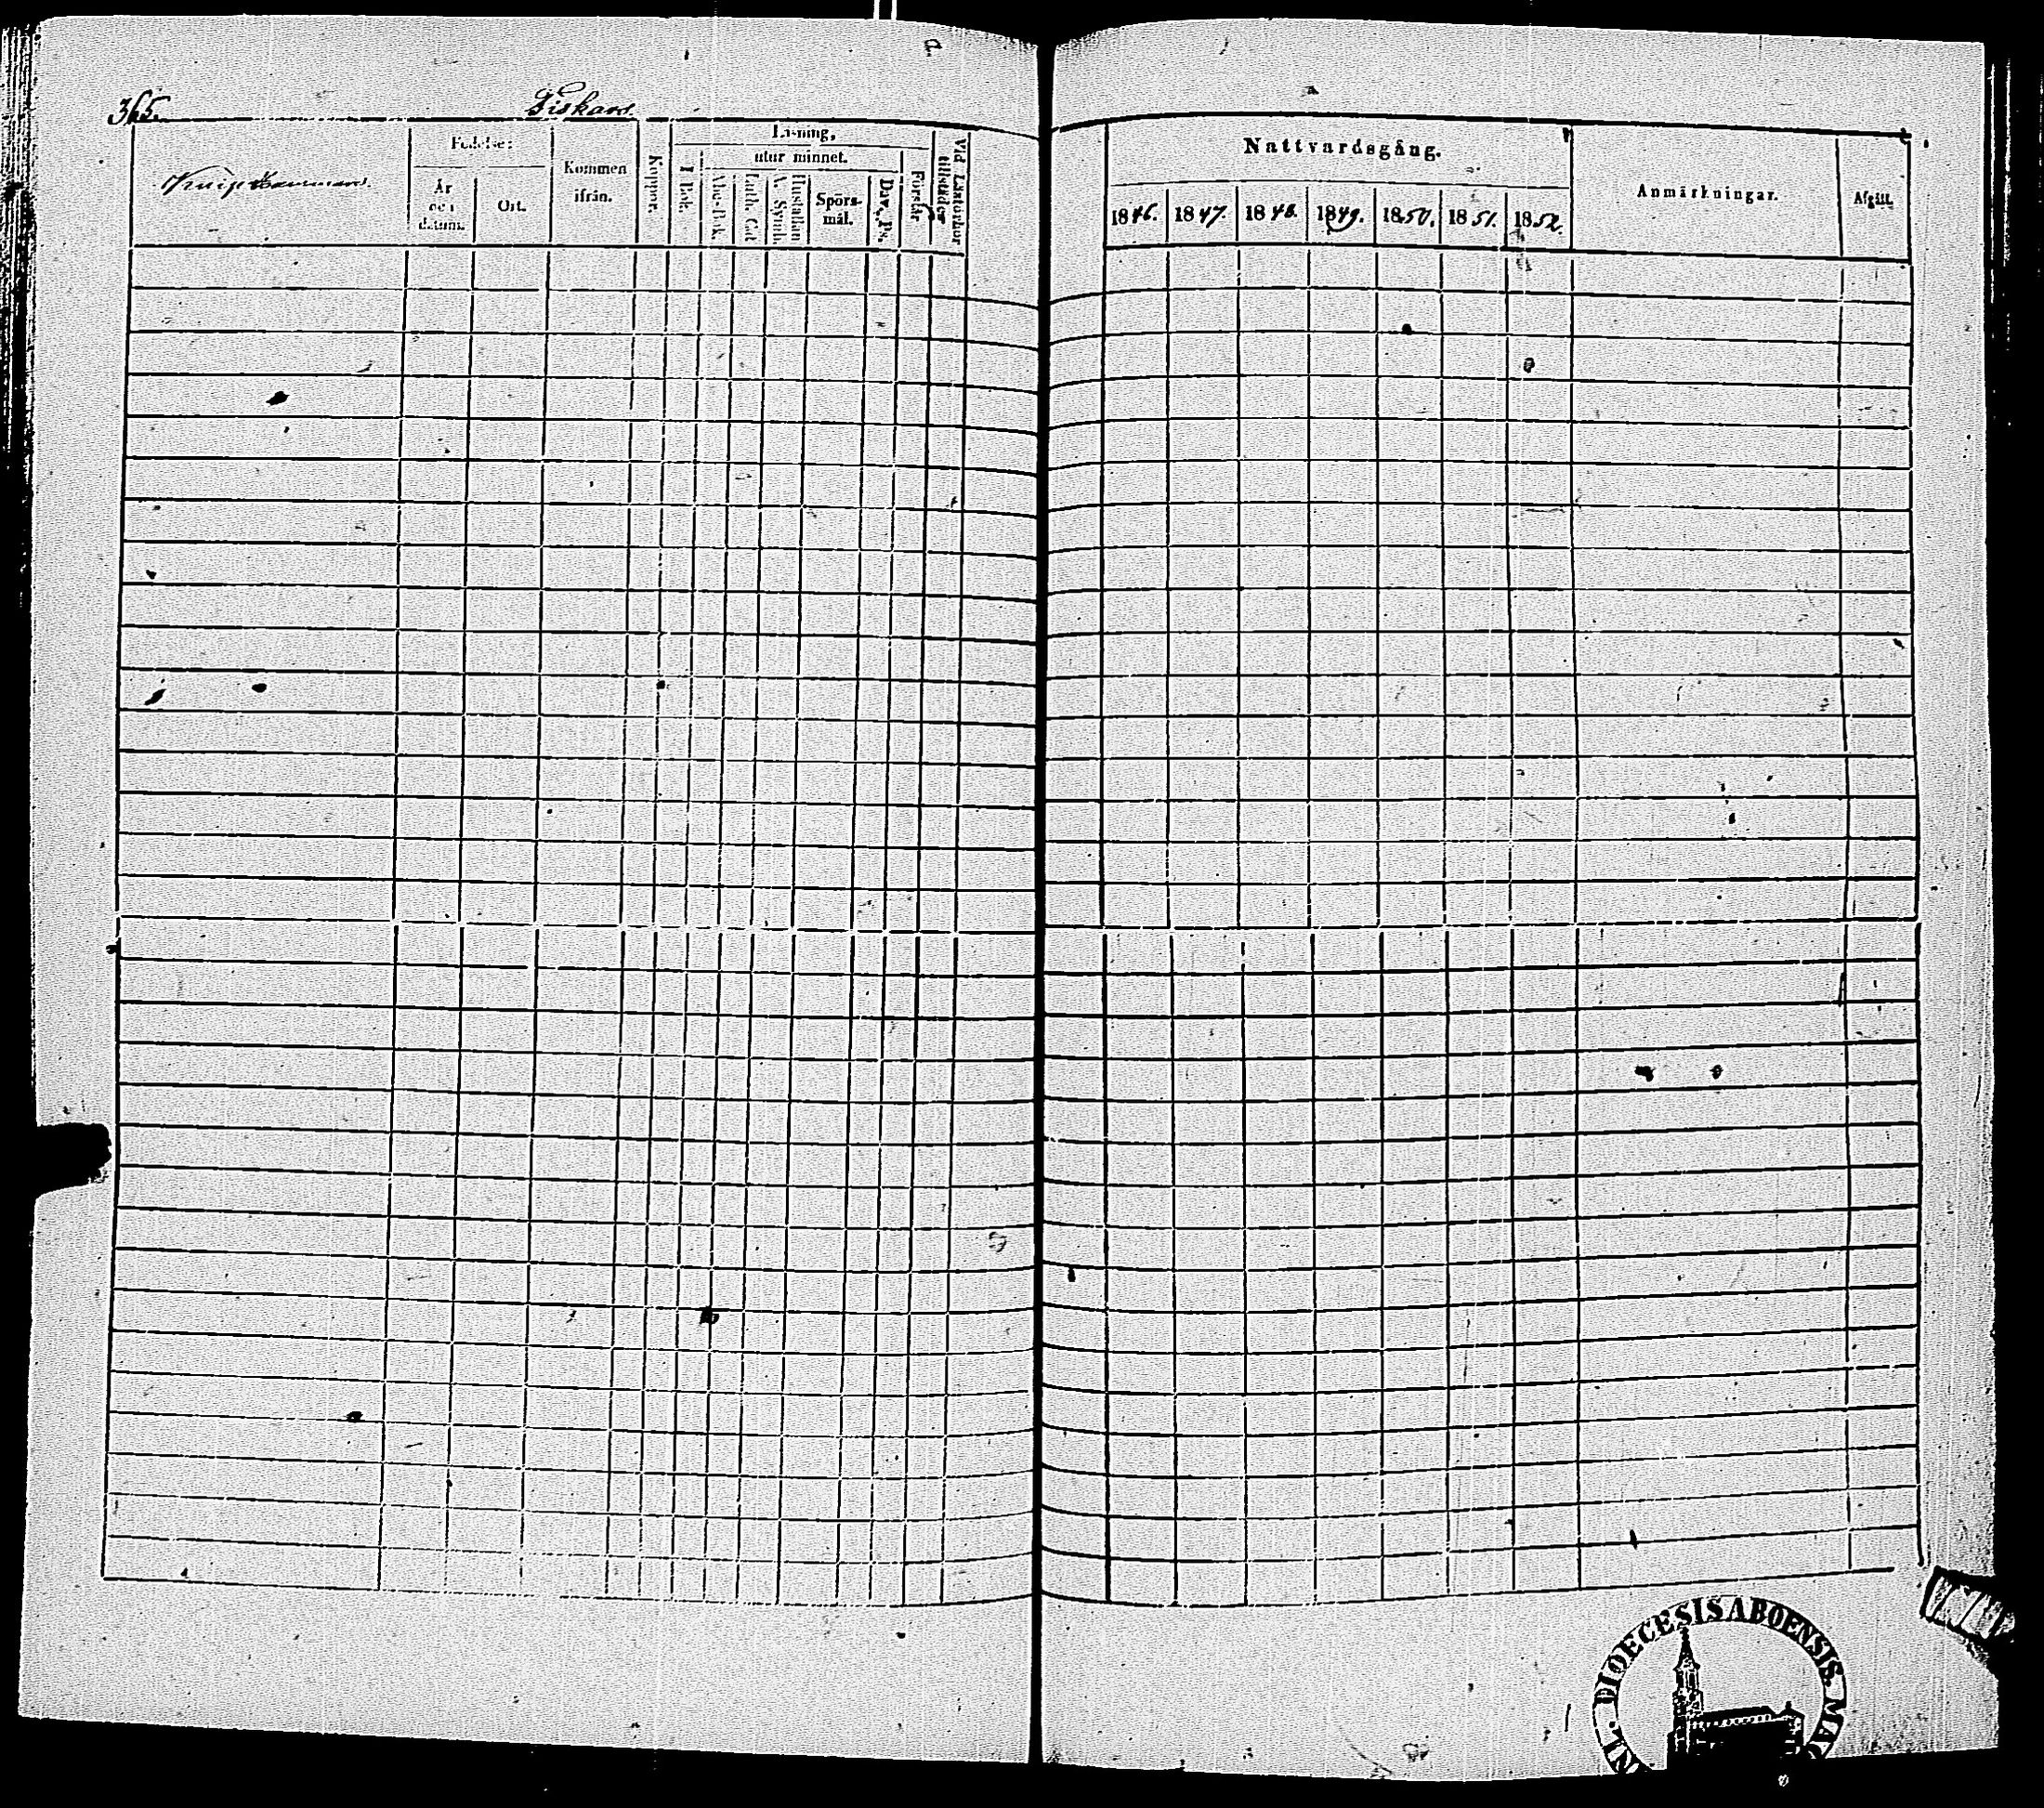 365.
Fiskars.
Födelse:
År
och
datum.
Ort.
Kommen
ifrån.
Koppor.
Läsning,
I Bok.
utur minnet.
Abc-Bok.
Luth. Cat
Hustaflan
A. Symb.
Spörs-
mål.
Dav. Ps.
Förstår
Vid Läsförhör
tillstädes
Nattvardsgång.
1846.
1847.
1848.
1849.
1850.
1851.
1852.
Anmärkningar.
Afgått.
DIOECESIS ABOENSIS.